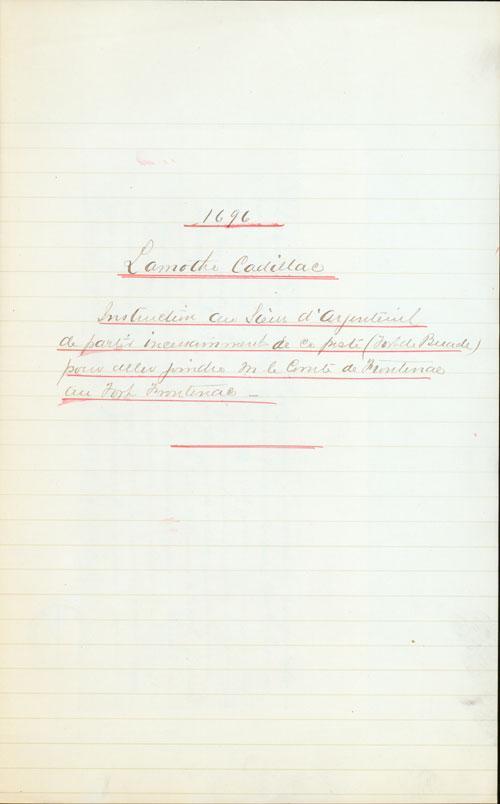 1696
Lamothe Cadillac
Instruction au Sieur d'Argenteuil
de partir incessamment de ce poste (Fort de Buade)
pour aller joindre M le Comte de Frontenac
au Fort Frontenac _